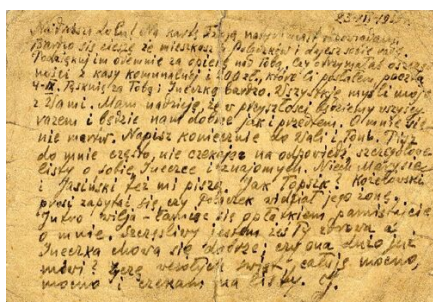 23-XII-19
Najdroższa Na kartę Twoją natychmiast odpowiadam.
Bardzo się cieszę że mieszkasz u i dajesz sobie radę.
Podziękuj im odemnie za opiekę nad Tobą. Czy otrzymałaś oszczę-
dności z kasy komunalnej i które Ci posłałem pocztą
4-IX. Tęsknię za Tobą i Ineczką bardzo. Wszystkie myśli moje
z Wami. Mam nadzieję, że w przyszłości będziemy wszyscy
razem i będzie nam dobrze jak i przedtem. O mnie się
nie martw. Napisz koniecznie do Wali i Pisz
do mnie często, nie czekając na odpowiedź, szczegółowe
listy o sobie, Ineczce i znajomych. Niech
i Jasiński też mi piszą. Jak i Kozłowski
prosi zapytać się, czy widział jego żonę.
Jutro wilja - łamiąc się opłatkiem, pamiętajcie
o mnie. Szczęśliwy jestem żeś Ty zdrowa a
Ineczka chowa się dobrze; czy ona dużo już
mówi? Życzę wesołych świąt, całuję mocno,
mocno i czekam na listy.